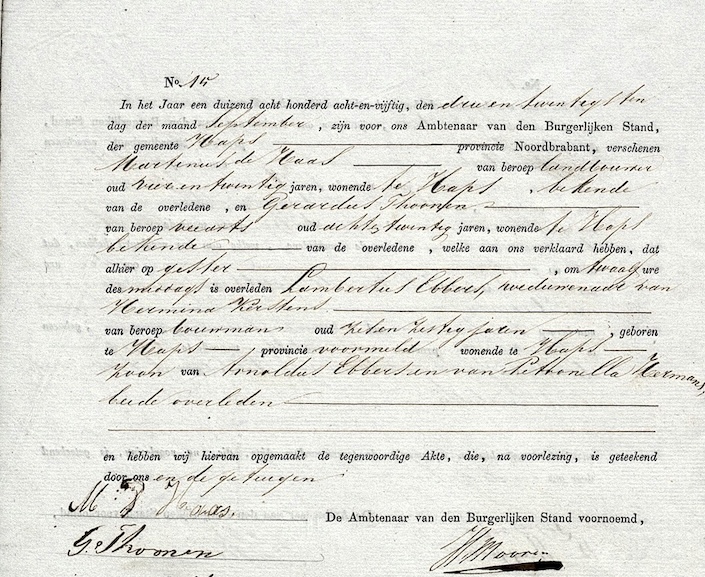 No. 15
In het Jaar een duizend acht honderd acht-en-vijftig, den drie en twintigsten
dag der maand September, zijn voor ons Ambtenaar van den Burgerlijken Stand,
der gemeente Haps provincie Noordbrabant, verschenen
Martinus de Haas van beroep landbouwer
oud vier en twintig jaren, wonende te Haps, bekende
van de overledene, en Gerardus Thoonen
van beroep veearts oud acht en twintig jaren, wonende te Haps
bekende van de overledene, welke aan ons verklaard hebben, dat
alhier op gister, om twaalf ure
des middags is overleden Lambertus Ebbers, weduwenaar van
Hermina Kerstens
van beroep bouwman oud zeven zestig jaren, geboren
te Haps provincie voormeld wonende te Haps
zoon van Arnoldus Ebbers en van Petronella Hermans,
beide overleden
en hebben wij hiervan opgemaakt de tegenwoordige Akte, die, na voorlezing, is geteekend
door ons en de getuigen
M. d Haas.
De Ambtenaar van den Burgerlijken Stand voornoemd,
G. Thoonen